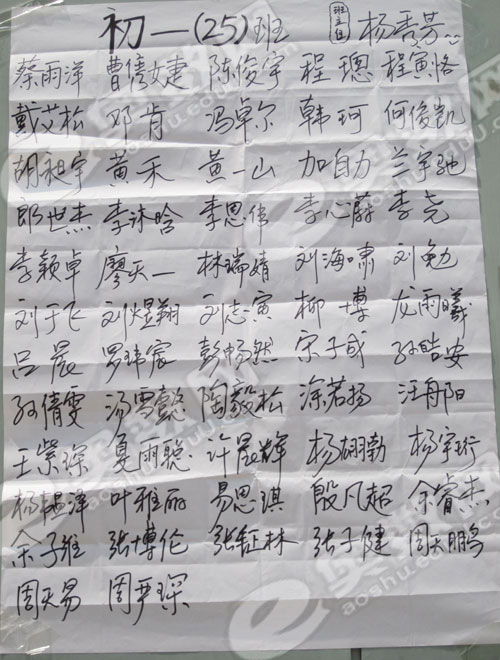 初一(25)班 班主任 杨秀芳
蔡雨洋 曹倩婕 陈俊宇 程璁 程寅恪
戴艾松 邓肯 冯卓尔 韩珂 何俊凯
胡昶宇 黄禾 黄一山 加自力 兰宇驰
郎世杰 李沐晗 李思伟 李心蔚 李尧
李颖卓 廖天一 林瑞婧 刘海啸 刘勉
刘于飞 刘煜翔 刘志寅 柳博 龙雨曦
吕晨 罗玮宸 彭畅然 宋子成 孙皓安
孙倩雯 汤雪懿 陶毅松 涂若扬 汪舟阳
王棠琛 夏雨聪 许晨辉 杨翃勃 杨宇珩
杨楹泽 叶雅丽 易思琪 殷凡超 余睿杰
余子维 张博伦 张钲林 张子健 周天鹏
周天易 周尹琛
奥数网
e
aoshu.com